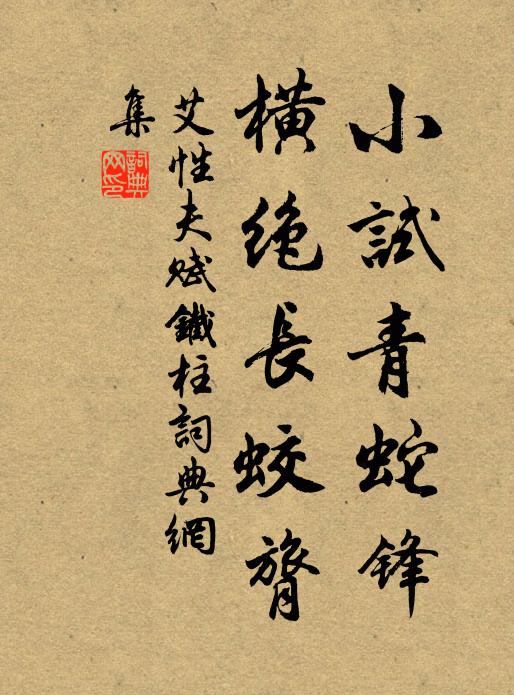 小試青蛇鋒
橫絕長蛟膂
艾性夫賦鐵柱詞典網
集
詞典網印